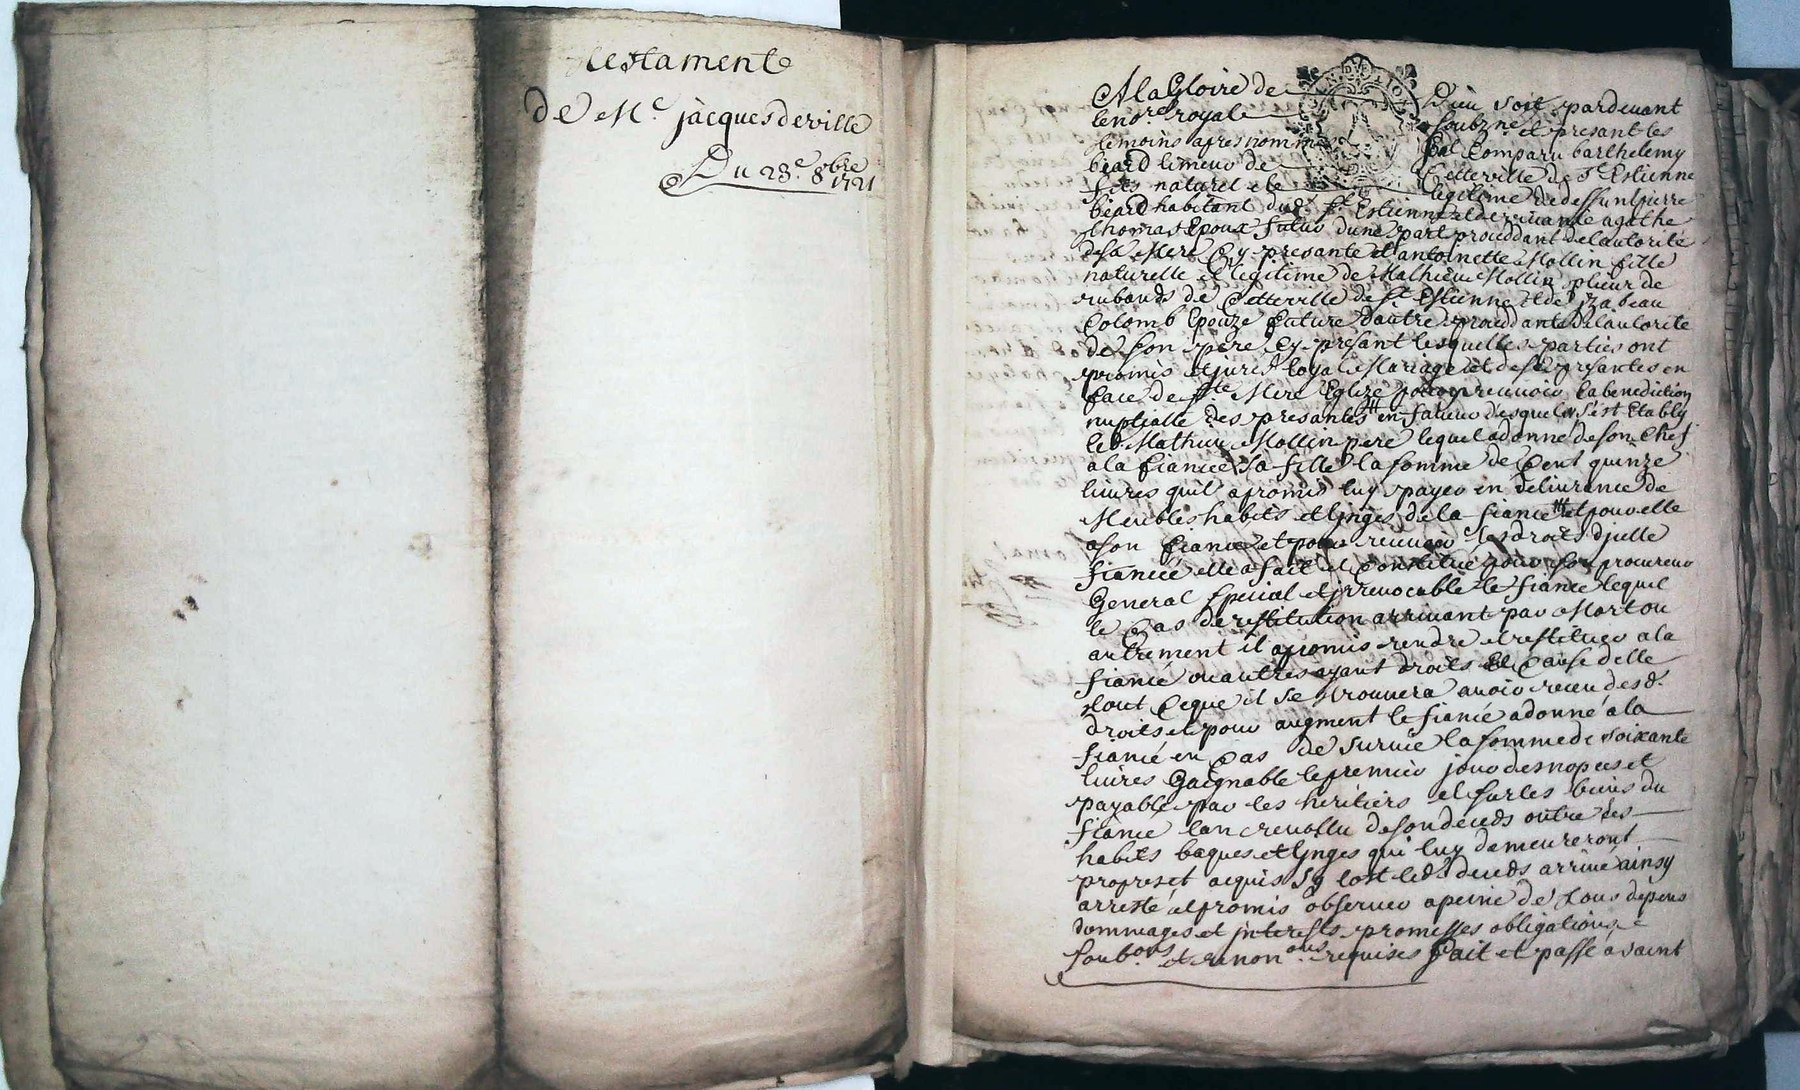 testament
de Me jacques deville
Du 23e 8bre 1721
A la Gloire de Dieu soit pardevant
le nore royal soubzne et presant les
temoins apres nommes fut Comparu barthelemy
beard de Cetteville de st Estienne
fils naturel et legitime de deffunt pierre
beard habitant dud. st Estienne et de vivante agathe
thomas Epoux futur dune part proceddant de lautorité
de sa Mere Cy presante et antoinette Mollin fille
naturelle et legitime de Mathieu Mollin plieur de
rubands de Cetteville de st Estienne et de jzabeau
Colomb Epouze future dautre proceddante de lautorité
de son pere Cy presant lesquelles parties ont
promis et juré loyal Mariage et de se presanter en
face de ste Mere Eglize pour y recevoir la benediction
nuptialle des presantes en faveur desquelles sest Etably
led Mathieu Mollin pere lequel a donné de son Chef
a la fiancée sa fille la somme de Cent quinze
livres quil a promis luy payer en delivrance de
Meubles habits et linges de la fiancée et pour elle
a son fiancé et pour recevoir les droits djcelle
fiancée elle a fait et Constitué pour son procureur
General special et jrrevocable le fiancé lequel
le Cas de restitution arrivant par Mort ou
autrement il a promis rendre et restituer a la
fiancé ou autres ayant droits et Cause delle
tout Ceque il se trouvera avoir receu desd.
droits et pour augment le fiancé a donné a la
fiancé en Cas de survie la somme de soixante
livres Gaignable le premier jour des nopces et
payable par les heritiers et sur les biens du
fiancé lan revollu de son deceds outre les
habits bagues et linges qui luy demeureront
propres et acquis sy tost led. deceds arrivé ainsy
arresté et promis observer a peine de tous depens
dommages et jnterests promesses obligations
soub.ons et renon.ons requises fait et passé a saint